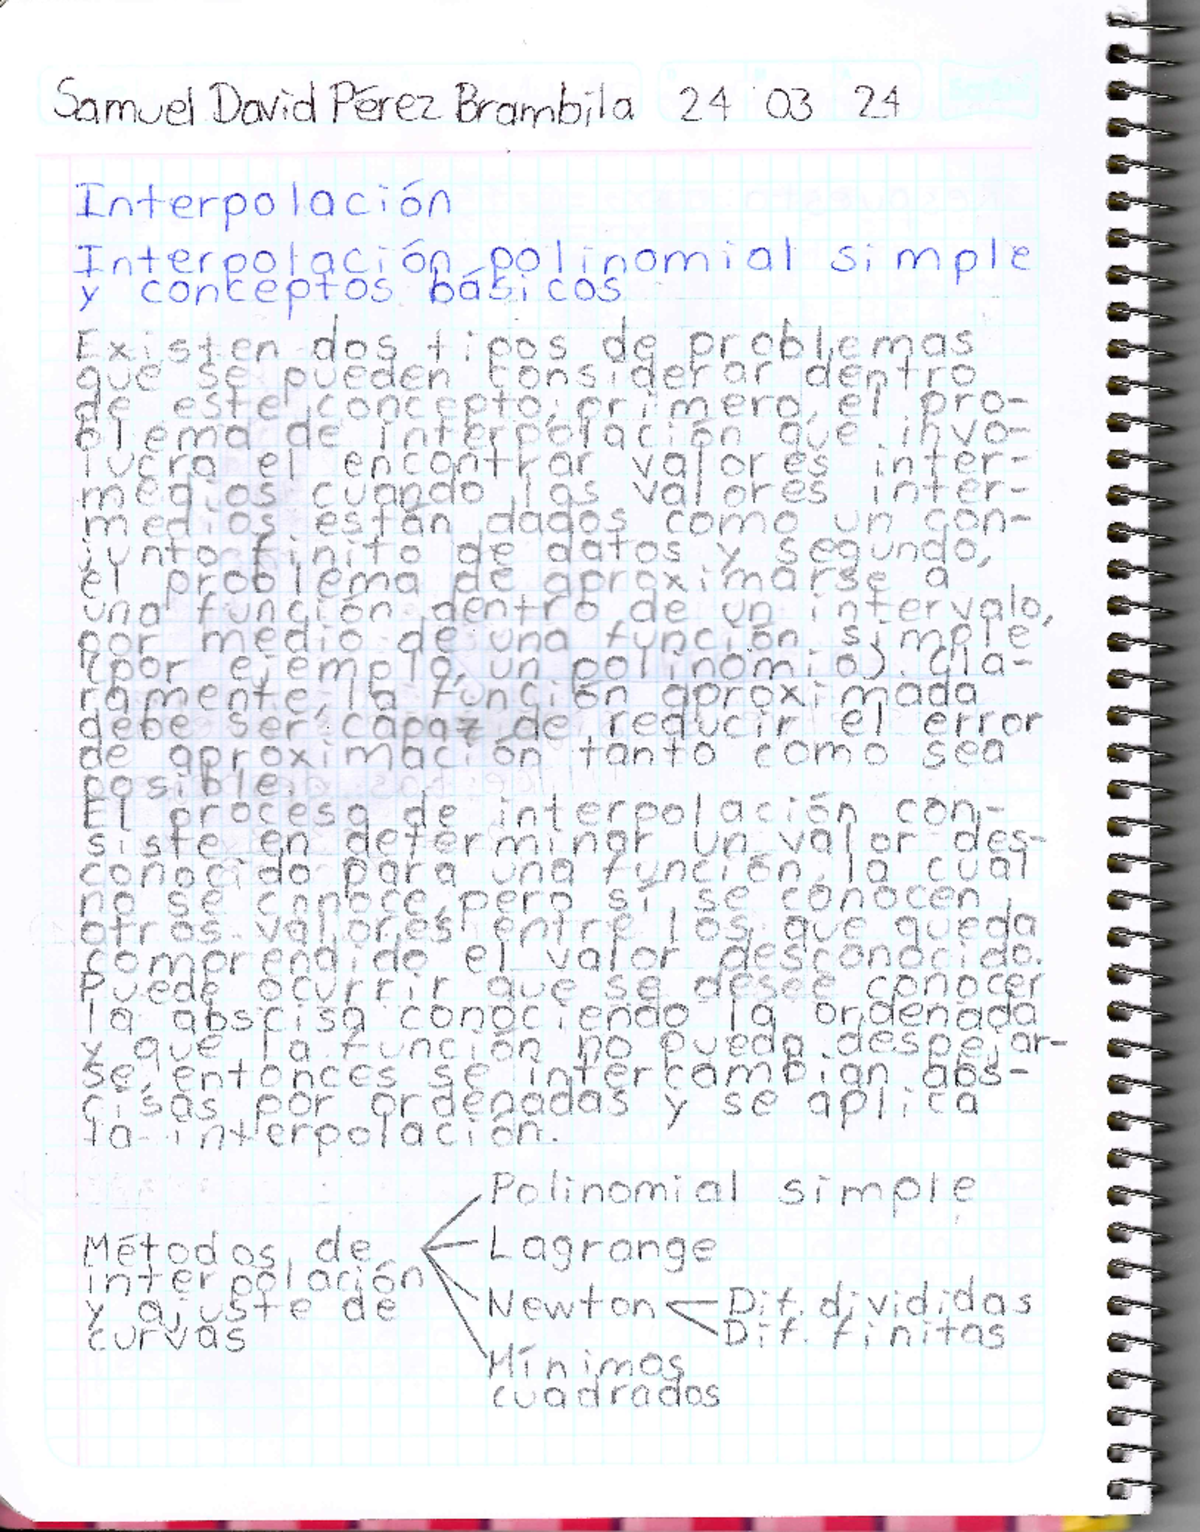 Samuel David Pérez Brambila 24 03 24
Interpolación
Interpolación polinomial simple
y conceptos básicos
Existen dos tipos de problemas
que se pueden considerar dentro
de este concepto; primero, el pro-
blema de interpolación que invo-
lucra el encontrar valores inter-
medios cuando los valores inter-
medios están dados como un con-
junto finito de datos y segundo,
el problema de aproximarse a
una función dentro de un intervalo,
por medio de una función simple
(por ejemplo, un polinomio). Cla-
ramente, la función aproximada
debe ser capaz de reducir el error
de aproximación tanto como sea
posible.
El proceso de interpolación con-
siste en determinar un valor des-
conocido para una función, la cual
no se conoce, pero sí se conocen
otros valores entre los que queda
comprendido el valor desconocido.
Puede ocurrir que se desee conocer
la abscisa conociendo la ordenada
y que la función no pueda despejar-
se, entonces se intercambian abs-
cisas por ordenadas y se aplica
la interpolación.
Métodos de
interpolación
y ajuste de
curvas
Polinomial simple
Lagrange
Newton
Dif. divididas
Dif. finitas
Mínimos
cuadrados